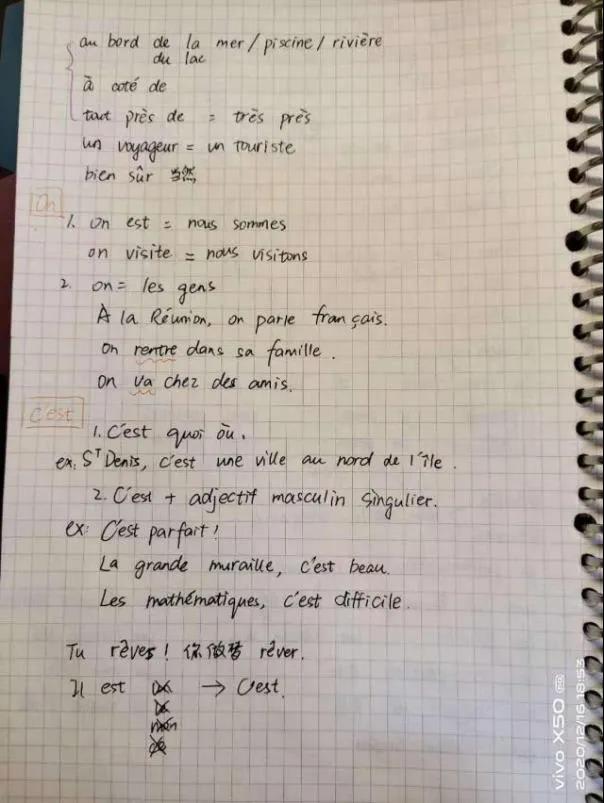 au bord de la mer / piscine / rivière
du lac
à coté de
tout près de = très près
un voyageur = un touriste
bien sûr 当然
On
1. on est = nous sommes
on visite = nous visitons
2. on = les gens
À la Réunion, on parle français.
on rentre dans sa famille.
on va chez des amis.
C'est
1. C'est quoi où.
ex: S^T Denis, c'est une ville au nord de l'île.
2. C'est + adjectif masculin singulier.
ex: C'est parfait!
La grande muraille, c'est beau.
Les mathématiques, c'est difficile.
Tu rêves! 你做梦 rêver.
Il est → C'est.
vivo X50
2020/12/16 18:53